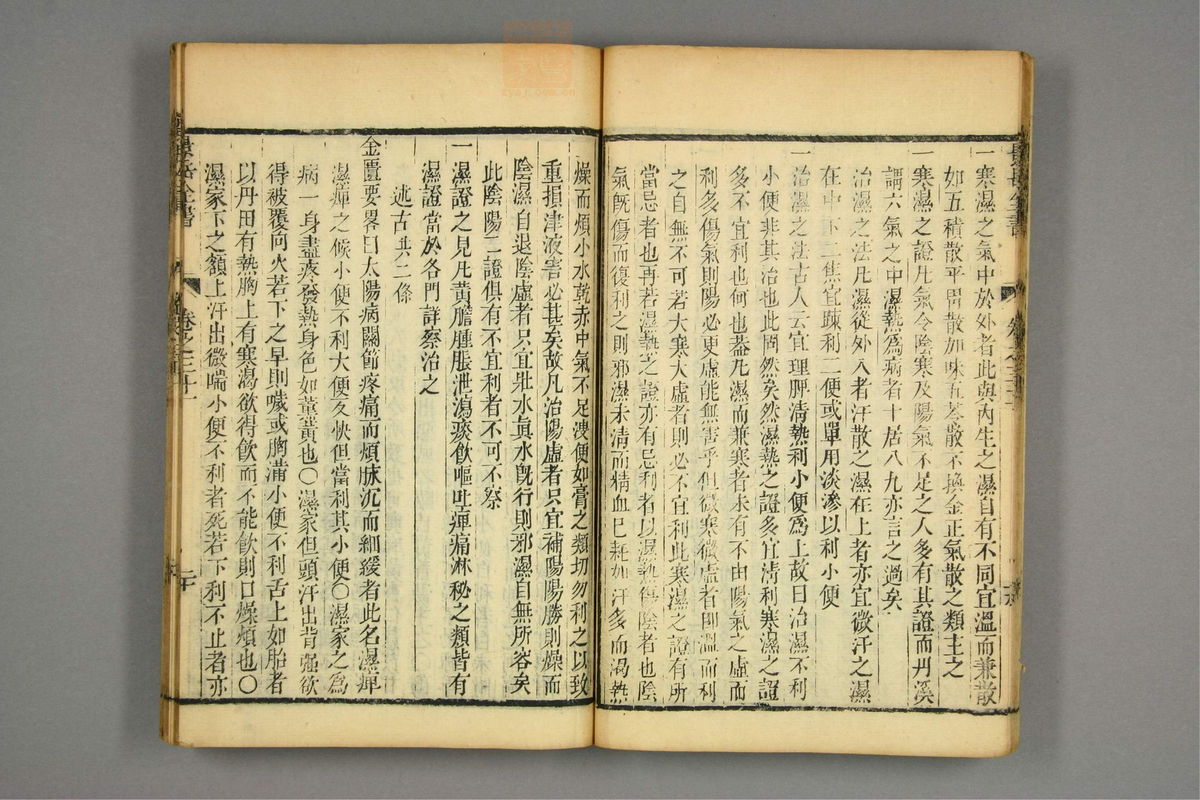 一寒濕之氣中於外者此與內生之濕自有不同宜溫而兼散
如五積散平胃散加味五苓散不換金正氣散之類主之
一寒濕之證凡氣令陰寒及陽氣不足之人多有其證而丹溪
謂六氣之中濕熱爲病者十居八九亦言之過矣
治濕之法凡濕從外入者汗散之濕在上者亦宜微汗之濕
在中下二焦宜疎利二便或單用淡滲以利小便
一治濕之法古人云宜理脾清熱利小便爲上故曰治濕不利
小便非其治也此固然矣然濕熱之證多宜清利寒濕之證
多不宜利也何也葢凡濕而兼寒者未有不由陽氣之虛而
利多傷氣則陽必更虛能無害乎但微寒微虛者即溫而利
之自無不可若大寒大虛者則必不宜利此寒濕之證有所
當忌者也再若濕熱之證亦有忌利者以濕熱傷陰者也陰
氣旣傷而復利之則邪濕未清而精血已耗如汗多而渴熱
燥而煩小水乾赤中氣不足溲便如膏之類切勿利之以致
重損津液害必甚矣故凡治陽虛者只宜補陽陽勝則燥而
陰濕自退陰虛者只宜壯水眞水旣行則邪濕自無所容矣
此陰陽二證俱有不宜利者不可不察
一濕證之見凡黃膽腫脹泄瀉痰飲嘔吐痺痛淋秘之類皆有
濕證當於各門詳察治之
述古共二條
金匱要畧曰太陽病關節疼痛而煩脉沉而細緩者此名濕痺
濕痺之候小便不利大便反快但當利其小便〇濕家之爲
病一身盡疼發熱身色如薰黃也〇濕家但頭汗出背强欲
得被覆向火若下之早則噦或胸滿小便不利舌上如胎者
以丹田有熱胸上有寒渴欲得飲而不能飲則口燥煩也〇
濕家下之額上汗出微喘小便不利者死若下利不止者亦
景岳全書
卷之三十一